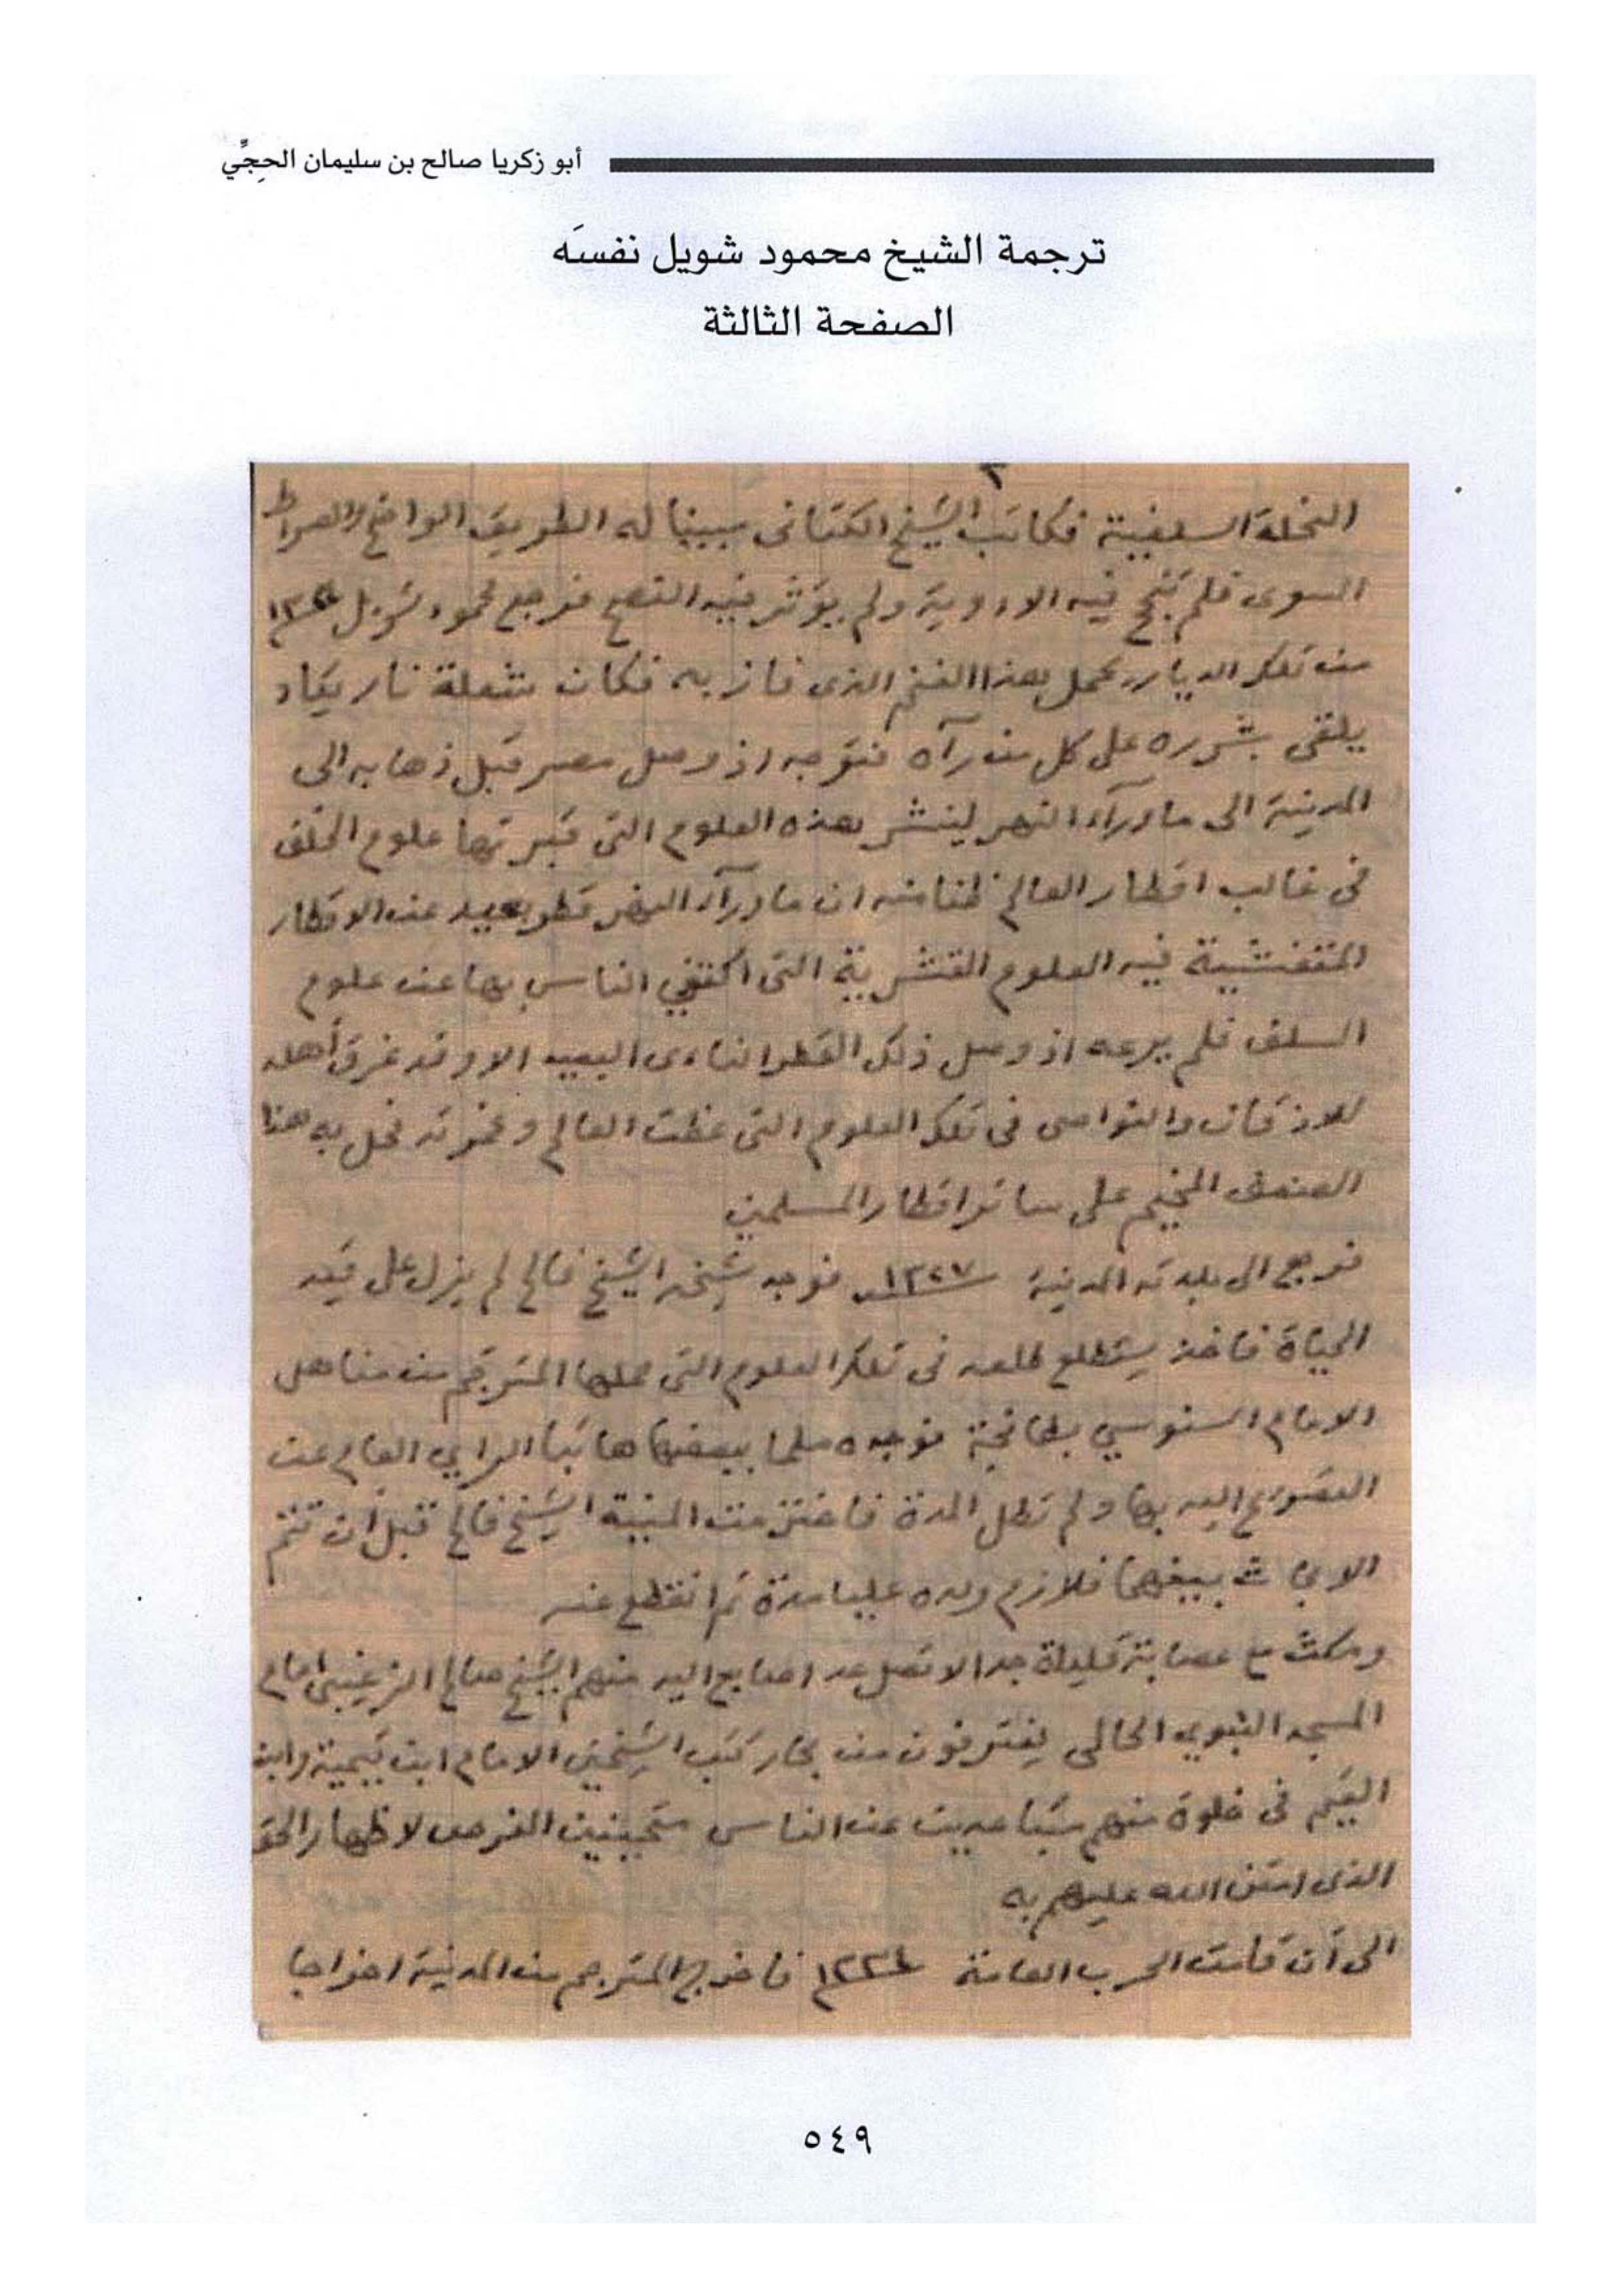 أبو زكريا صالح بن سليمان الحِجِّي
ترجمة الشيخ محمود شويل نفسَه
الصفحة الثالثة
٣
النحلة السلفية فكاتب الشيخ الكتانى مبينا له الطريق الواضح والصراط
السوى فلم تنجح فيه الادوية ولم يؤثر فيه النصح فرجع محمود شويل
من تلك الديار يحمل هذا الفتح الذى فاز به فكان شعلة نار يكاد
يلقى بشرره على كل من رآه فتوجه اذ وصل مصر قبل ذهابه الى
المدينة الى ما وراء النهر لينشر هذه العلوم التى قبرتها علوم الخلف
فى غالب اقطار العالم ظنا منه ان ما وراء النهر قطر بعيد عن الاقطار
المتفشية فيه العلوم القشرية التى اكتفي الناس بها عن علوم
السلف فلم يرعه اذ وصل ذلك القطر النائى البعيد الا وقد غرق أهله
للاذقان والنواصى فى تلك العلوم التى غطت العالم وغمرته فحل به هذا
الضعف المخيم على سائر اقطار المسلمين
فرجع الى بلدته المدينة ١٣٢٧ فوجد شيخه الشيخ فالح لم يزل على قيد
الحياة فاخذ يستطلع طلعه فى تلك العلوم التى حملها المترجم من مناهل
الامام السنوسي بطانجة فوجده ملما ببعضها هائبا الرأي العام عن
التصريح اليه بها ولم تطل المدة فاخترمت المنية الشيخ فالح قبل أن تتم
الابحاث بينهما فلازم ولده عليا مدة ثم انقطع عنه
ومكث مع عصابة قليلة جدا لا تصل عد اصابع اليد منهم الشيخ صالح الزغيبى امام
المسجد النبوي الحالى يغترفون من بحار كتب الشيخين الامام ابن تيمية وابن
القيم فى خلوة منهم متباعدين عن الناس متحينين الفرص لاظهار الحق
الذى امتن الله عليهم به
الى أن قامت الحرب العامة ١٣٣٤ فاخرج المترجم من المدينة اخراجا
٥٤٩